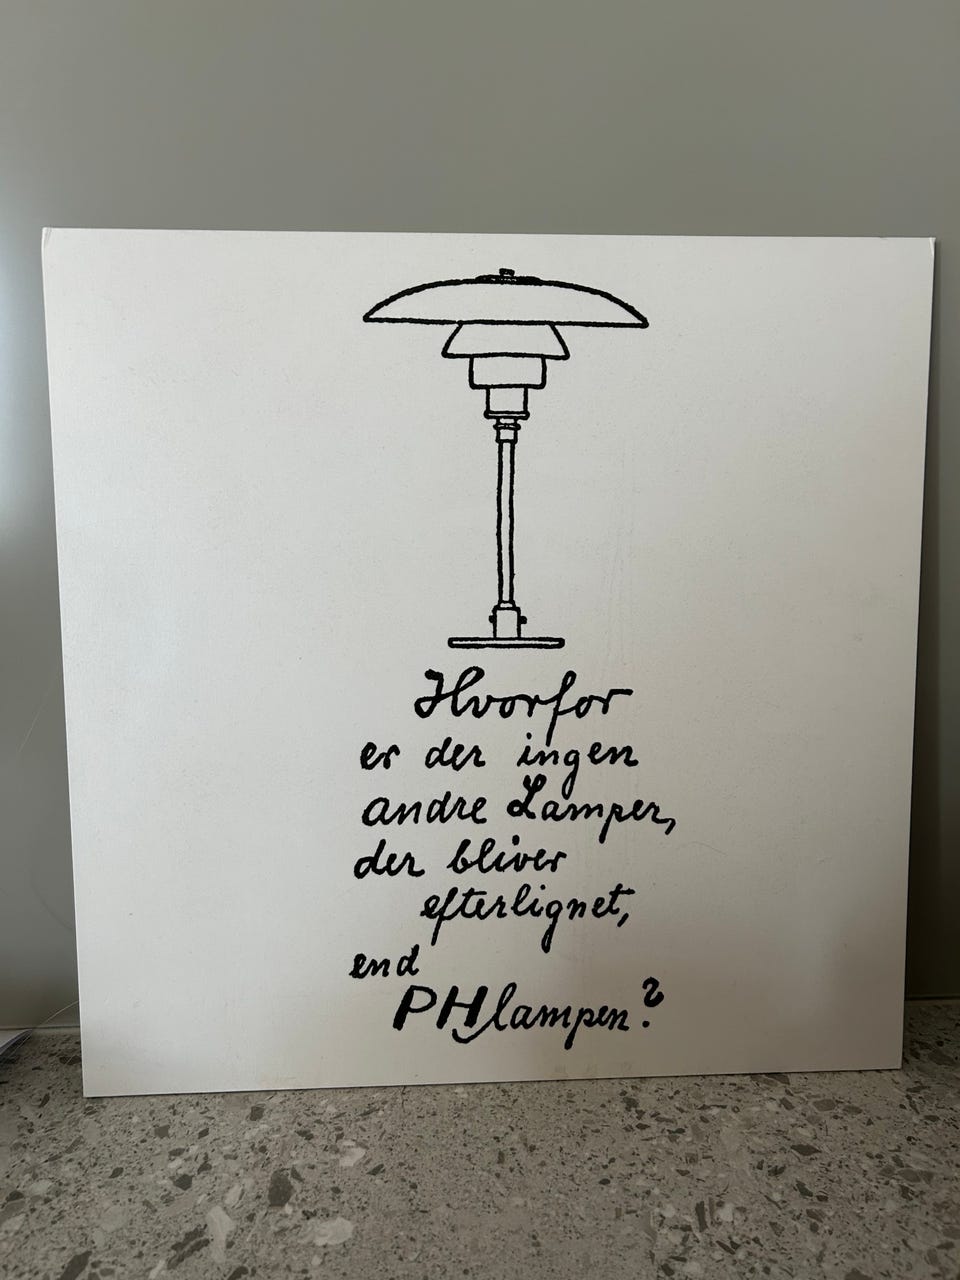 Hvorfor
er der ingen
andre Lamper,
der bliver
efterlignet,
end
PHlampen?